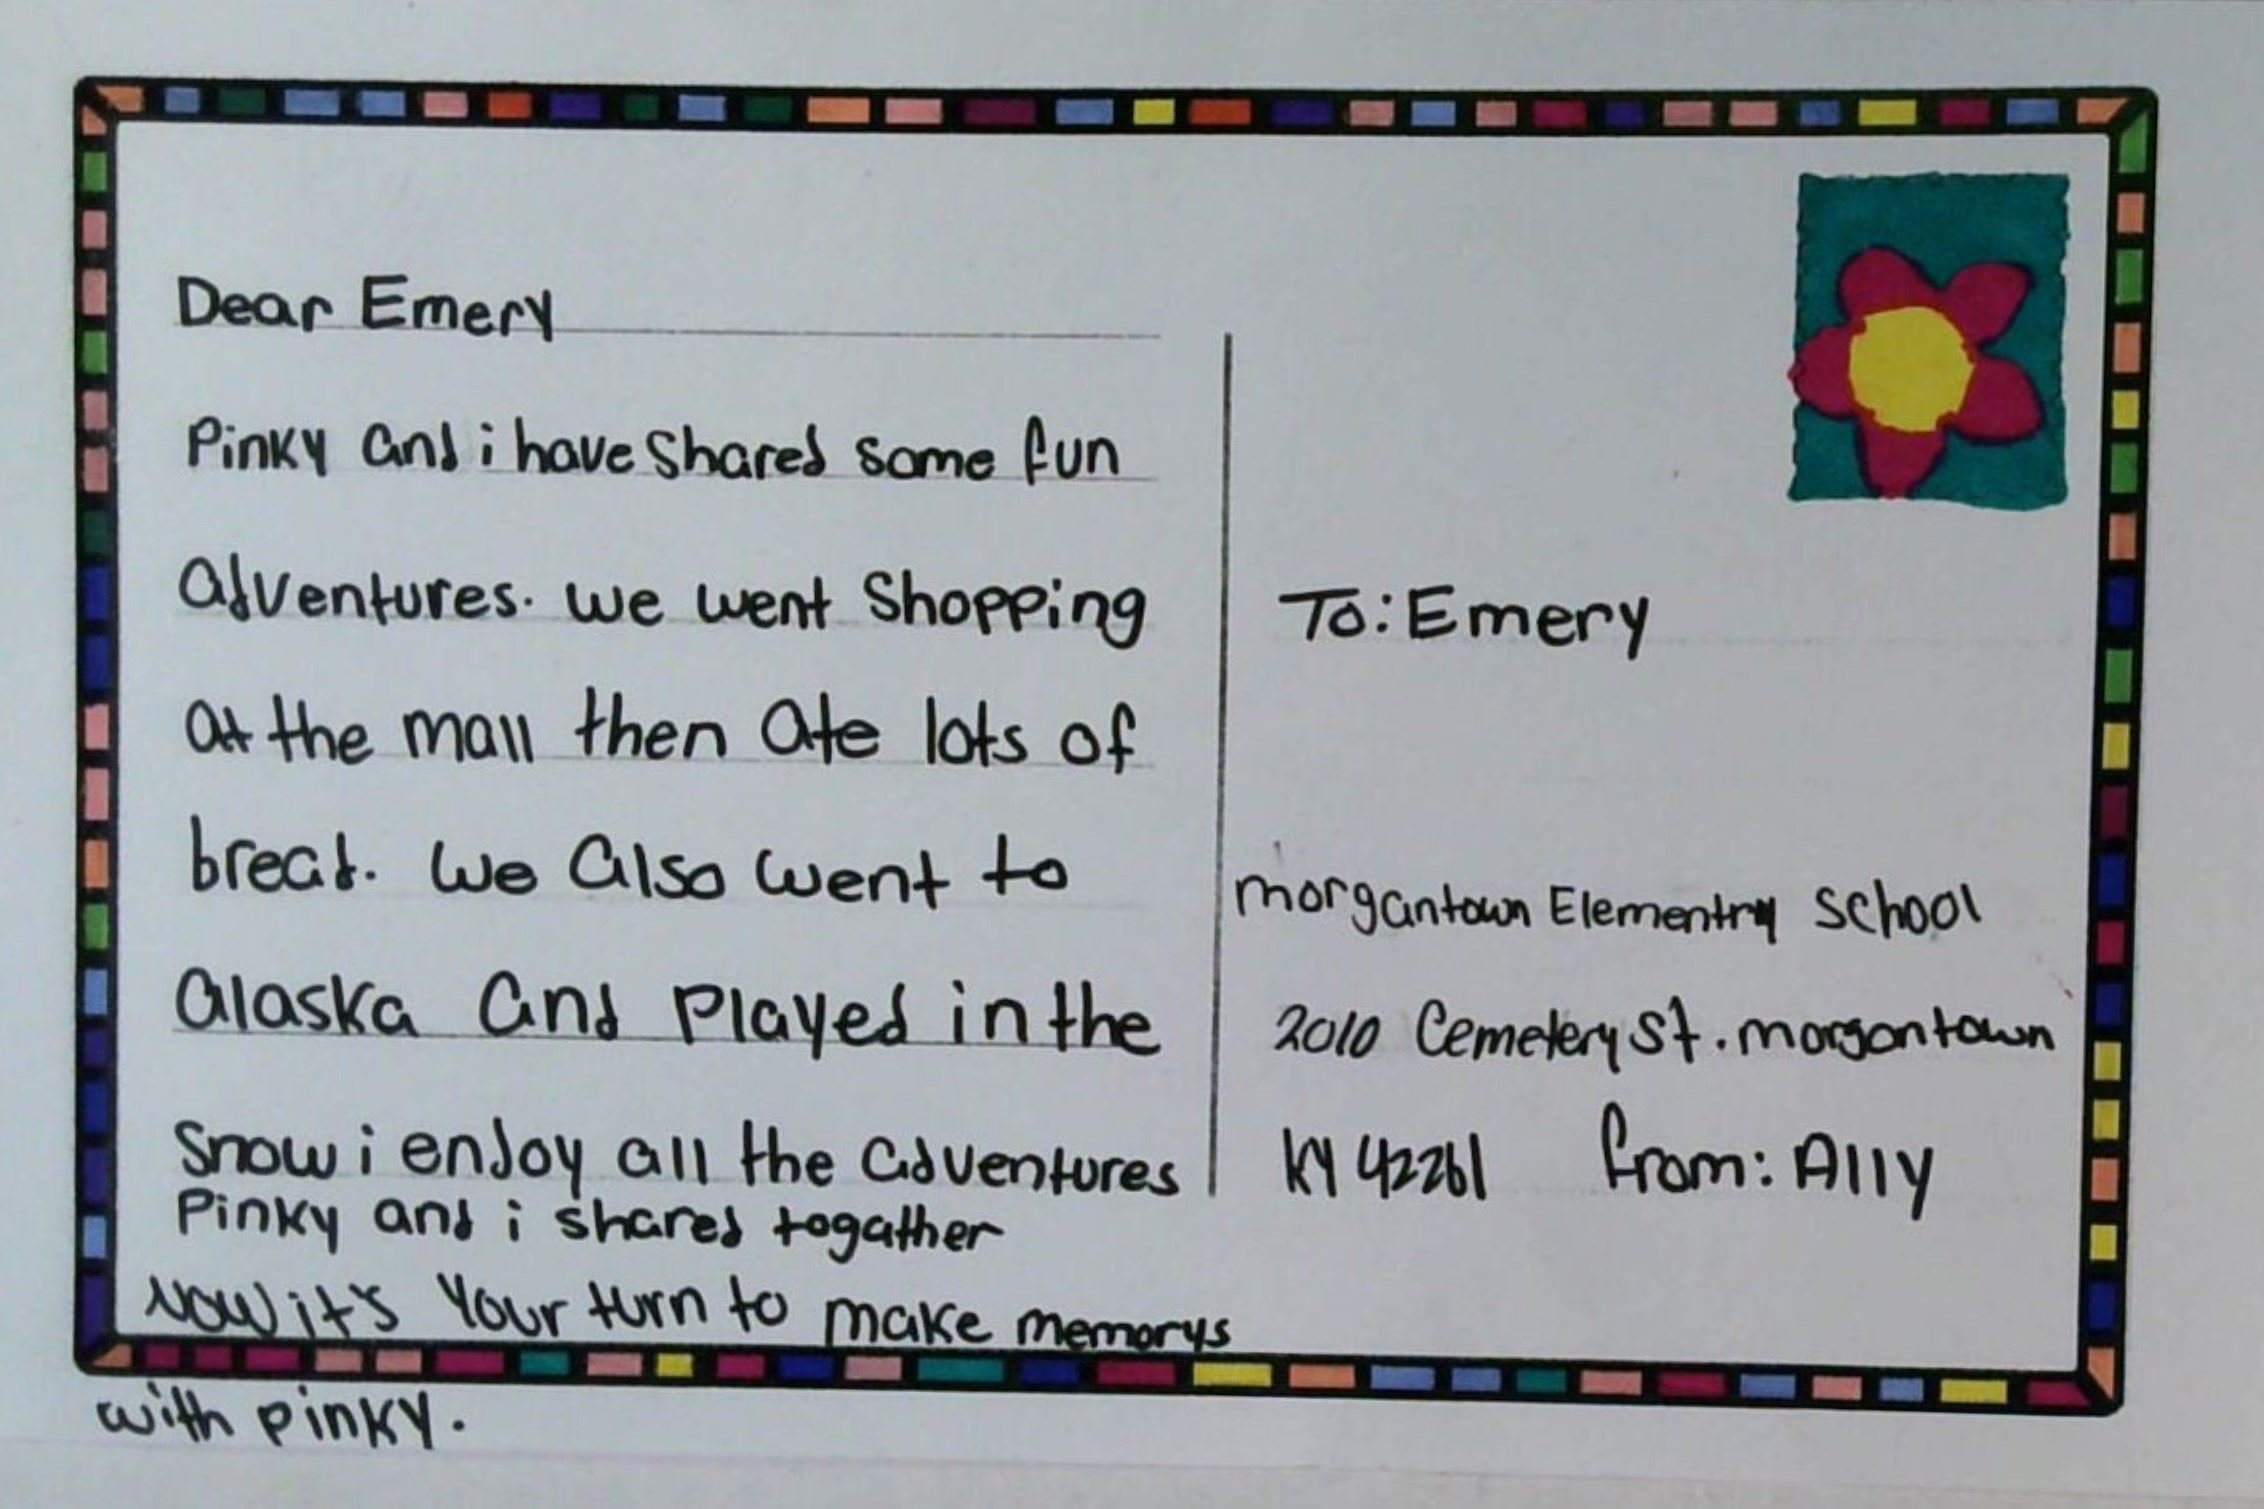 Dear Emery
Pinky and i have shared some fun
adventures. we went shopping
at the mall then ate lots of
bread. we also went to
alaska and played in the
snow i enjoy all the adventures
Pinky and i shared togather
Now it's your turn to make memorys
with pinky.
To: Emery
morgantown Elementry school
2010 Cemetery St. morgantown
KY 42261 from: Ally